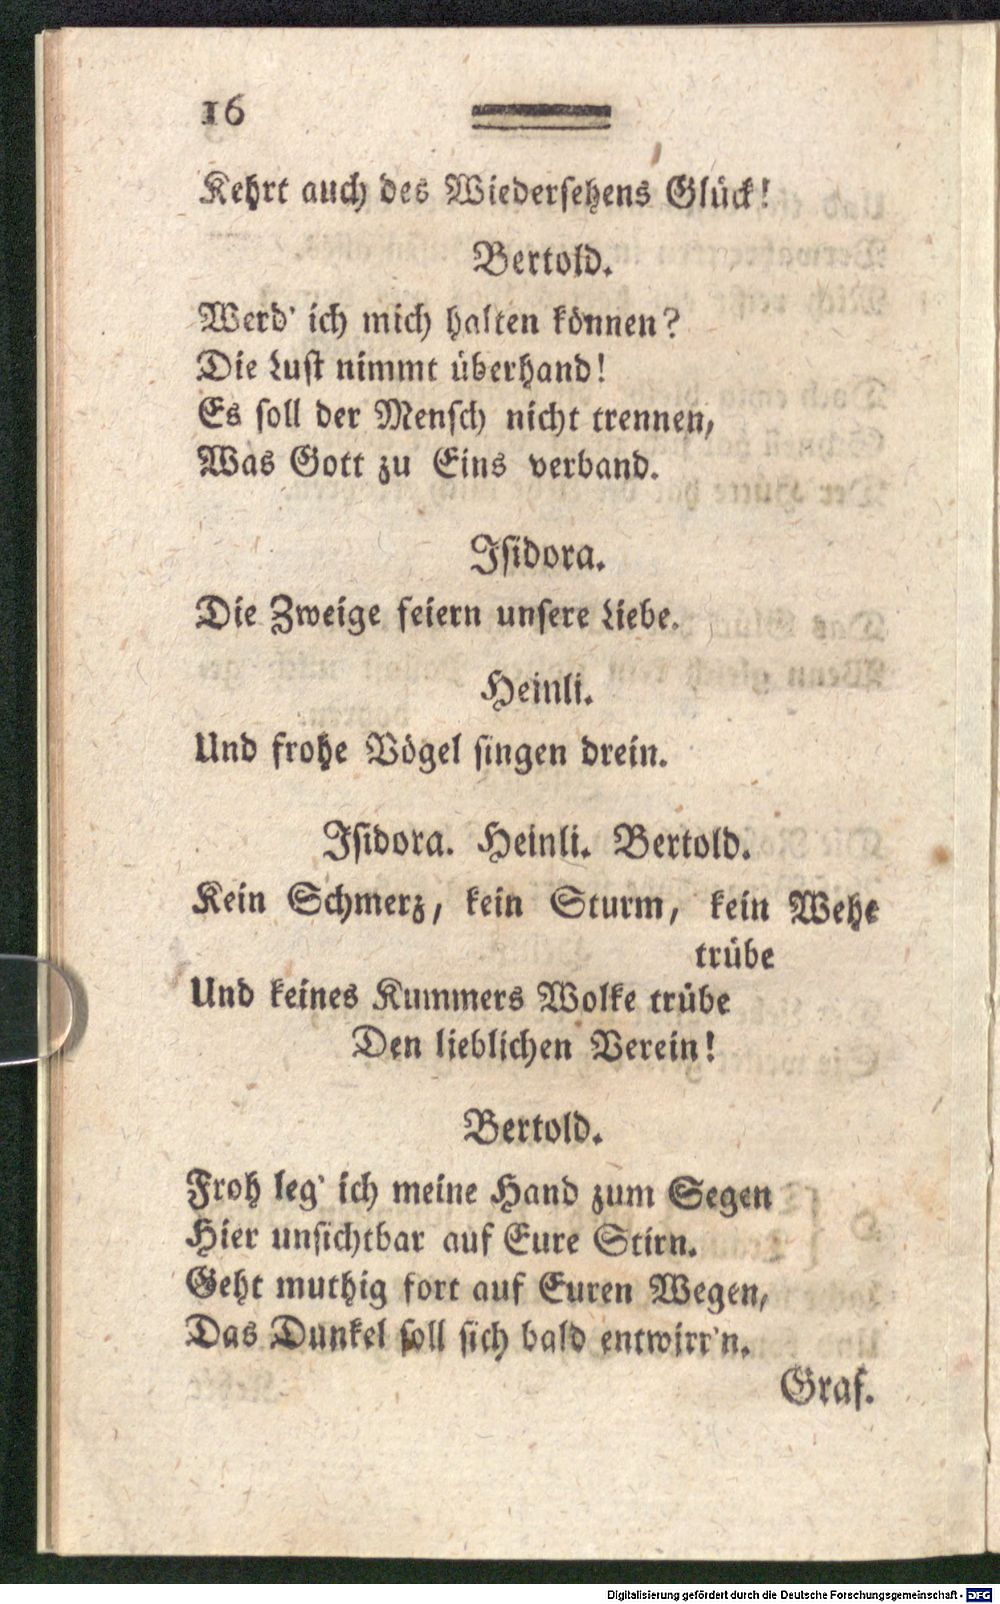 16
Kehrt auch des Wiedersehens Glück!
Bertold.
Werd' ich mich halten können?
Die Lust nimmt überhand!
Es soll der Mensch nicht trennen,
Was Gott zu Eins verband.
Isidora.
Die Zweige feiern unsere Liebe.
Heinli.
Und frohe Vögel singen drein.
Isidora. Heinli. Bertold.
Kein Schmerz, kein Sturm, kein Wehe
trübe
Und keines Kummers Wolke trübe
Den lieblichen Verein!
Bertold.
Froh leg' ich meine Hand zum Segen
Hier unsichtbar auf Eure Stirn.
Geht muthig fort auf Euren Wegen,
Das Dunkel soll sich bald entwirr'n.
Graf.
Digitalisierung gefördert durch die Deutsche Forschungsgemeinschaft - DFG